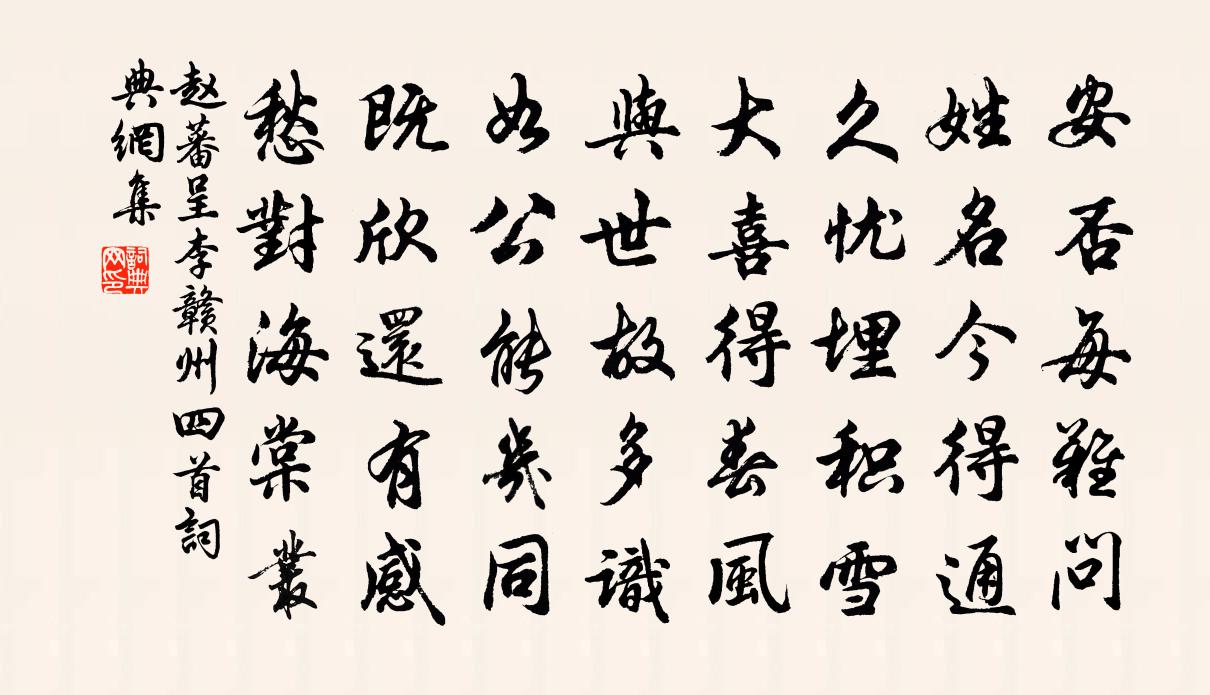 安否每難問
姓名今得通
久忧埋积雪
大喜得春風
與世故多識
如公能幾同
既欣還有感
愁對海棠叢
赵蕃呈李赣州四首詞
典網集
詞典網印